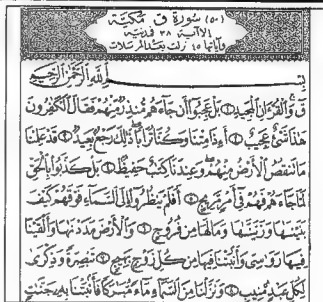 (٥٠) سورة ق مكية
إلا آية ٣٨ فمدنية
وآياتها ٤٥ نزلت بعد المرسلات
بسم الله الرحمن الرحيم
ق والقرآن المجيد ١ بل عجبوا أن جاءهم منذر منهم فقال الكافرون
هذا شيء عجيب ٢ أءذا متنا وكنا ترابا ذلك رجع بعيد ٣ قد علمنا
ما تنقص الأرض منهم وعندنا كتاب حفيظ ٤ بل كذبوا بالحق
لما جاءهم فهم في أمر مريج ٥ أفلم ينظروا إلى السماء فوقهم كيف
بنيناها وزيناها وما لها من فروج ٦ والأرض مددناها وألقينا
فيها رواسي وأنبتنا فيها من كل زوج بهيج ٧ تبصرة وذكرى
لكل عبد منيب ٨ ونزلنا من السماء ماء مباركا فأنبتنا به جنات